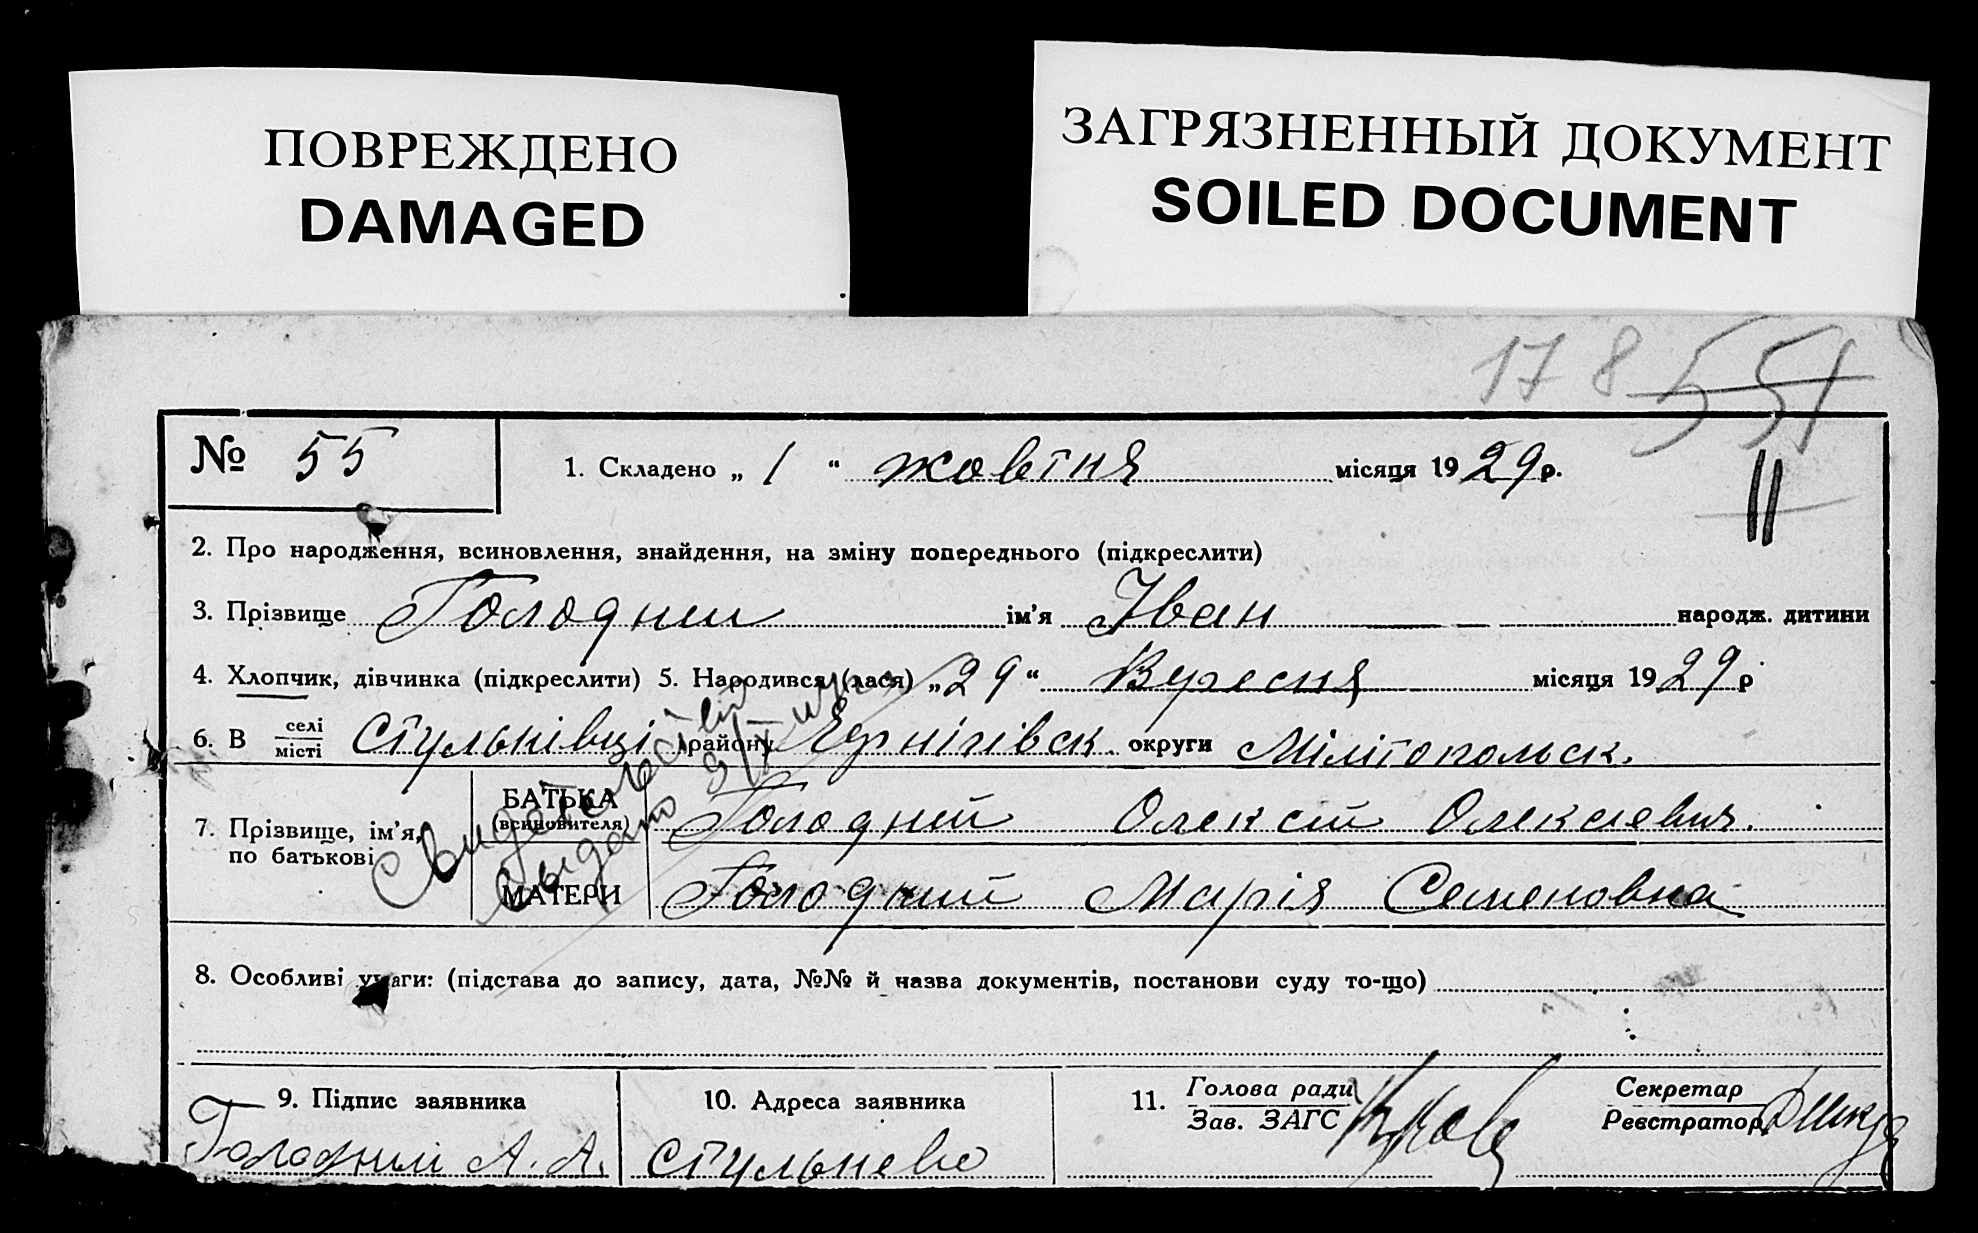 ПОВРЕЖДЕНО
DAMAGED
ЗАГРЯЗНЕННЫЙ ДОКУМЕНТ
SOILED DOCUMENT
178 551
II
№ 55
1. Складено „ 1 “ жовтня місяця 19 29 р.
2. Про народження, всиновлення, знайдення, на зміну попереднього (підкреслити)
3. Прізвище Голодний ім’я Іван народж. дитини
4. Хлопчик, дівчинка (підкреслити) 5. Народився (лася) „ 29 “ Вересня місяця 19 29 р
6. В селі місті Стульнівці району Чернігівск. округи Мілітопольск.
7. Прізвище, ім’я, по батькові
БАТЬКА (всиновителя) Голодний Олексій Олексієвич.
МАТЕРИ Голодний Марія Семеновна
Свидетельство
выдано
8. Особливі уваги: (підстава до запису, дата, №№ й назва документів, постанови суду то-що)
9. Підпис заявника
Голодний А. А.
10. Адреса заявника
Стульнево
11. Голова ради
Зав. ЗАГС
Секретар
Реєстратор